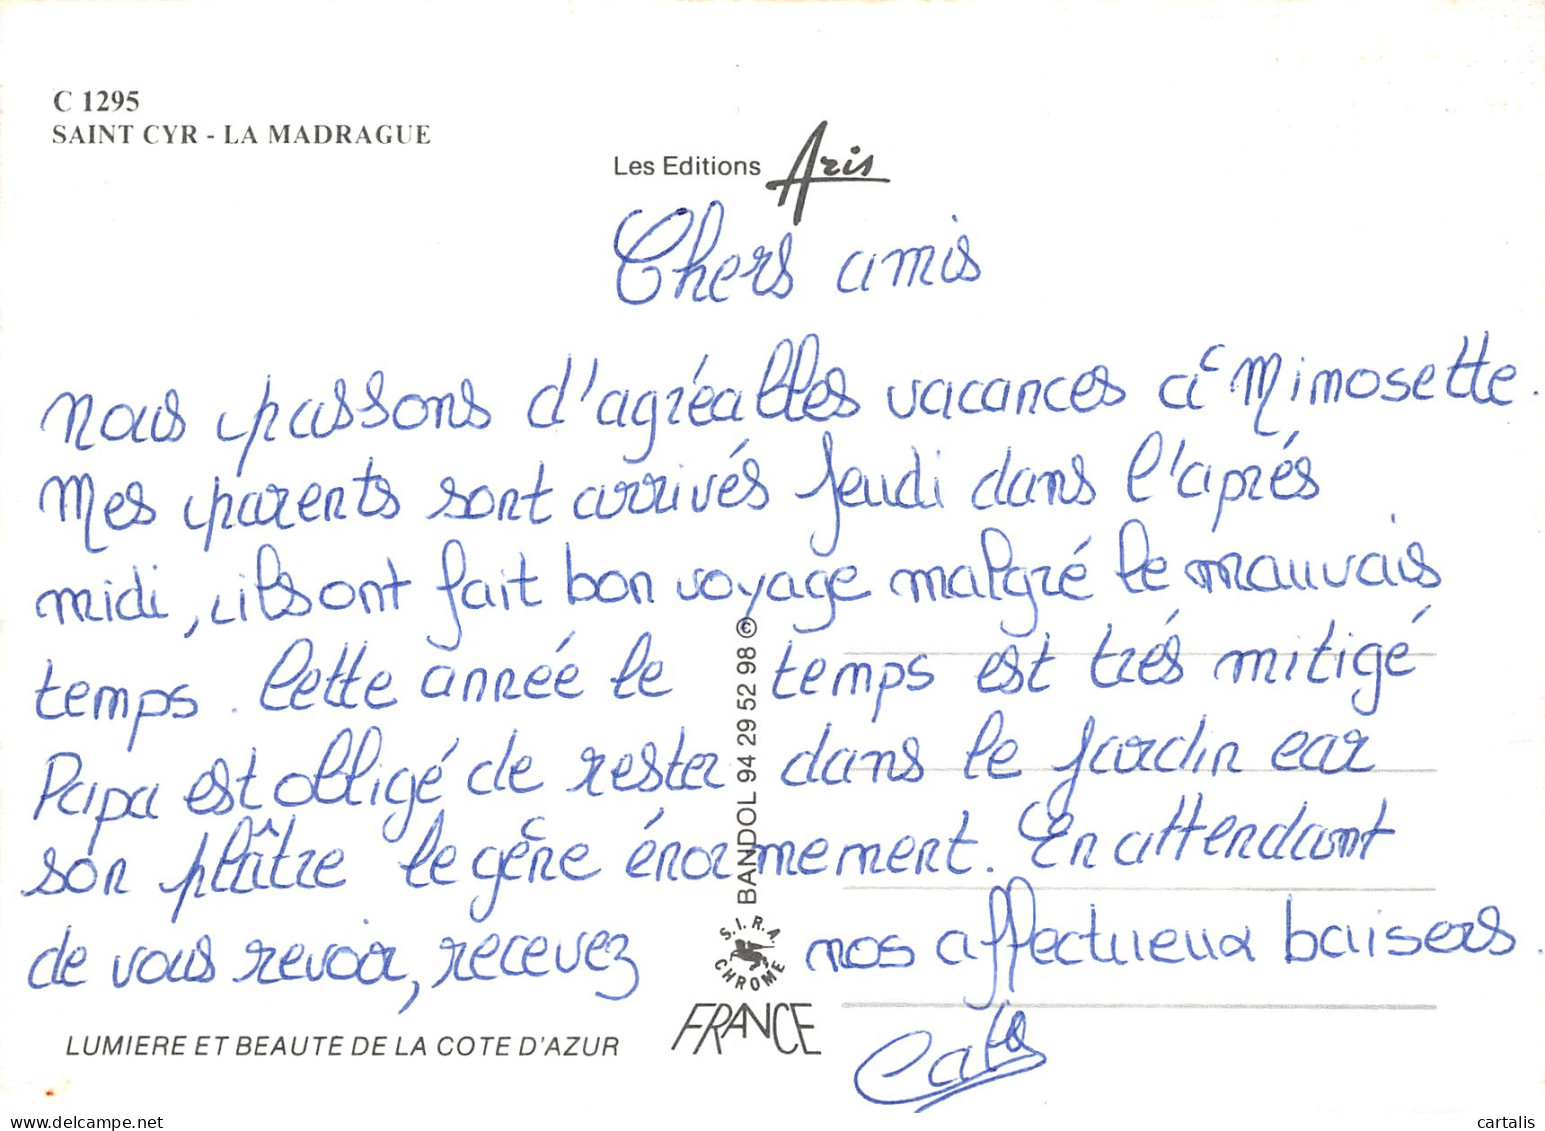 C 1295
SAINT CYR - LA MADRAGUE
Les Editions Aris
Chers amis
Nous passons d'agréables vacances à Mimosette.
Mes parents sont arrivés jeudi dans l'aprés
midi, ils ont fait bon voyage malgré le mauvais
temps. Cette année le temps est trés mitigé
Papa est obligé de rester dans le jardin car
son plâtre le gène énormement. En attendant
de vous revoir, recevez nos affectueux baisers.
BANDOL 94 29 52 98 ©
S.I.R.A.
CHROME
FRANCE
LUMIERE ET BEAUTE DE LA COTE D'AZUR
delcampe.net
cartalis